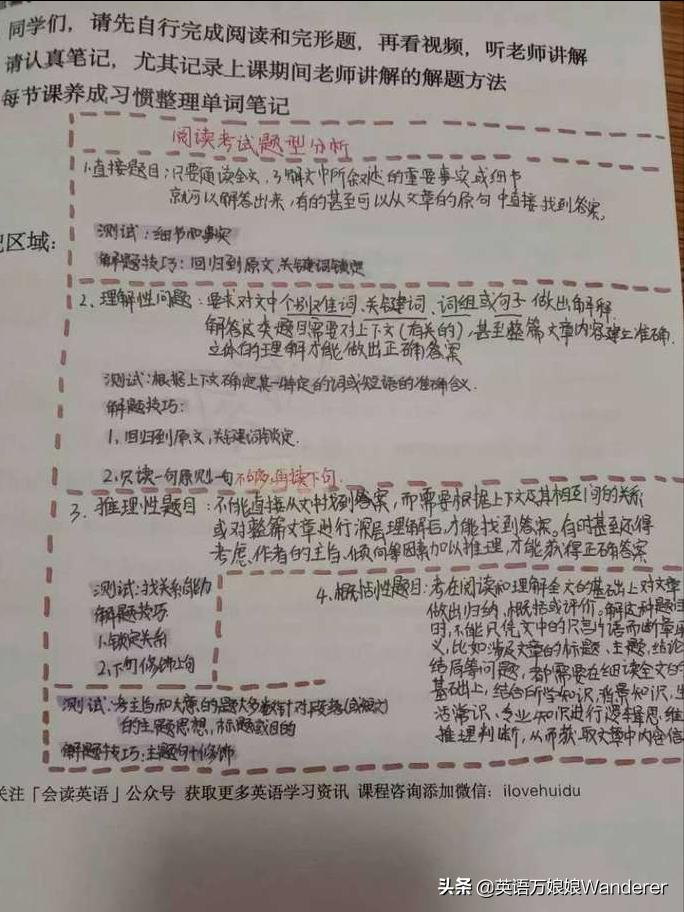 同学们，请先自行完成阅读和完形题，再看视频，听老师讲解
请认真笔记，尤其记录上课期间老师讲解的解题方法
每节课养成习惯整理单词笔记
阅读考试题型分析
1.直接题目：只要通读全文，了解文中所叙述的重要事实或细节
就可以解答出来，有的甚至可以从文章的原句中直接找到答案。
区域：
测试：细节和事实
解题技巧：回归到原文，关键词锁定
2、理解性问题：要求对文中个别难词、关键词、词组或句子做出解释
解答这类题目需要对上下文(有关的)，甚至整篇文章内容建立准确.
立体的理解才能做出正确答案
测试：根据上下文确定某一特定的词或短语的准确含义.
解题技巧：
1、回归到原文，关键词锁定.
2、只读一句原则 一句不够，再读下句.
3、推理性题目：不能直接从文中找到答案，而需要根据上下文及其相互间的关系
或对整篇文章进行深层理解后，才能找到答案。有时甚至还得
考虑作者的主旨、倾向等因素加以推理，才能获得正确答案
测试：找关系能力
解题技巧
1、锁定关系
2、下句修饰上句
4、概括性题目：考在阅读和理解全文的基础上对文章
做出归纳，概括或评价。解这种题目
时，不能只凭文中的只言片语而断章取
义，比如涉及文章的标题、主题，结论
结局等问题，都需要在细读全文的
基础上，结合所学知识，背景知识，生
活常识、专业知识进行逻辑思维
推理判断，从而获取文章中内容信
测试：考主旨和大意的题大多数针对段落(或短文)
的主题思想，标题或目的
解题技巧：主题句+修饰
关注「会读英语」公众号 获取更多英语学习资讯 课程咨询添加微信：ilovehuidu
头条 @英语万娘娘Wanderer